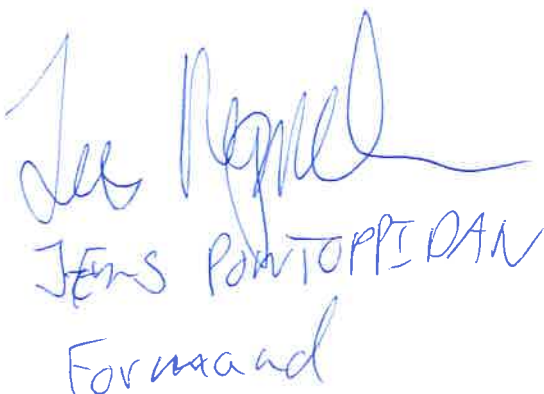 JENS PONTOPPIDAN
Formand